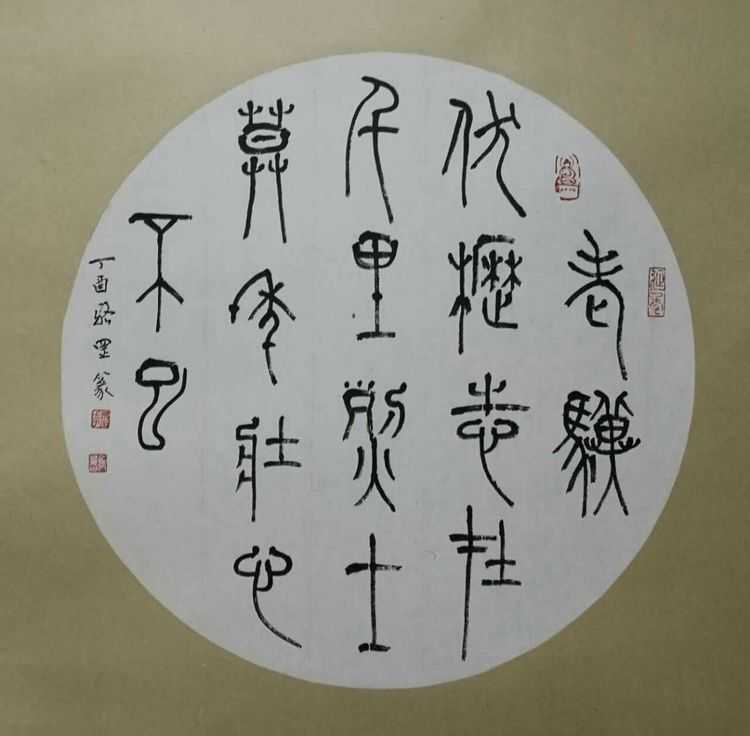 老驥
伏櫪志在
千里烈士
莫年壯心
不已
丁酉 篆